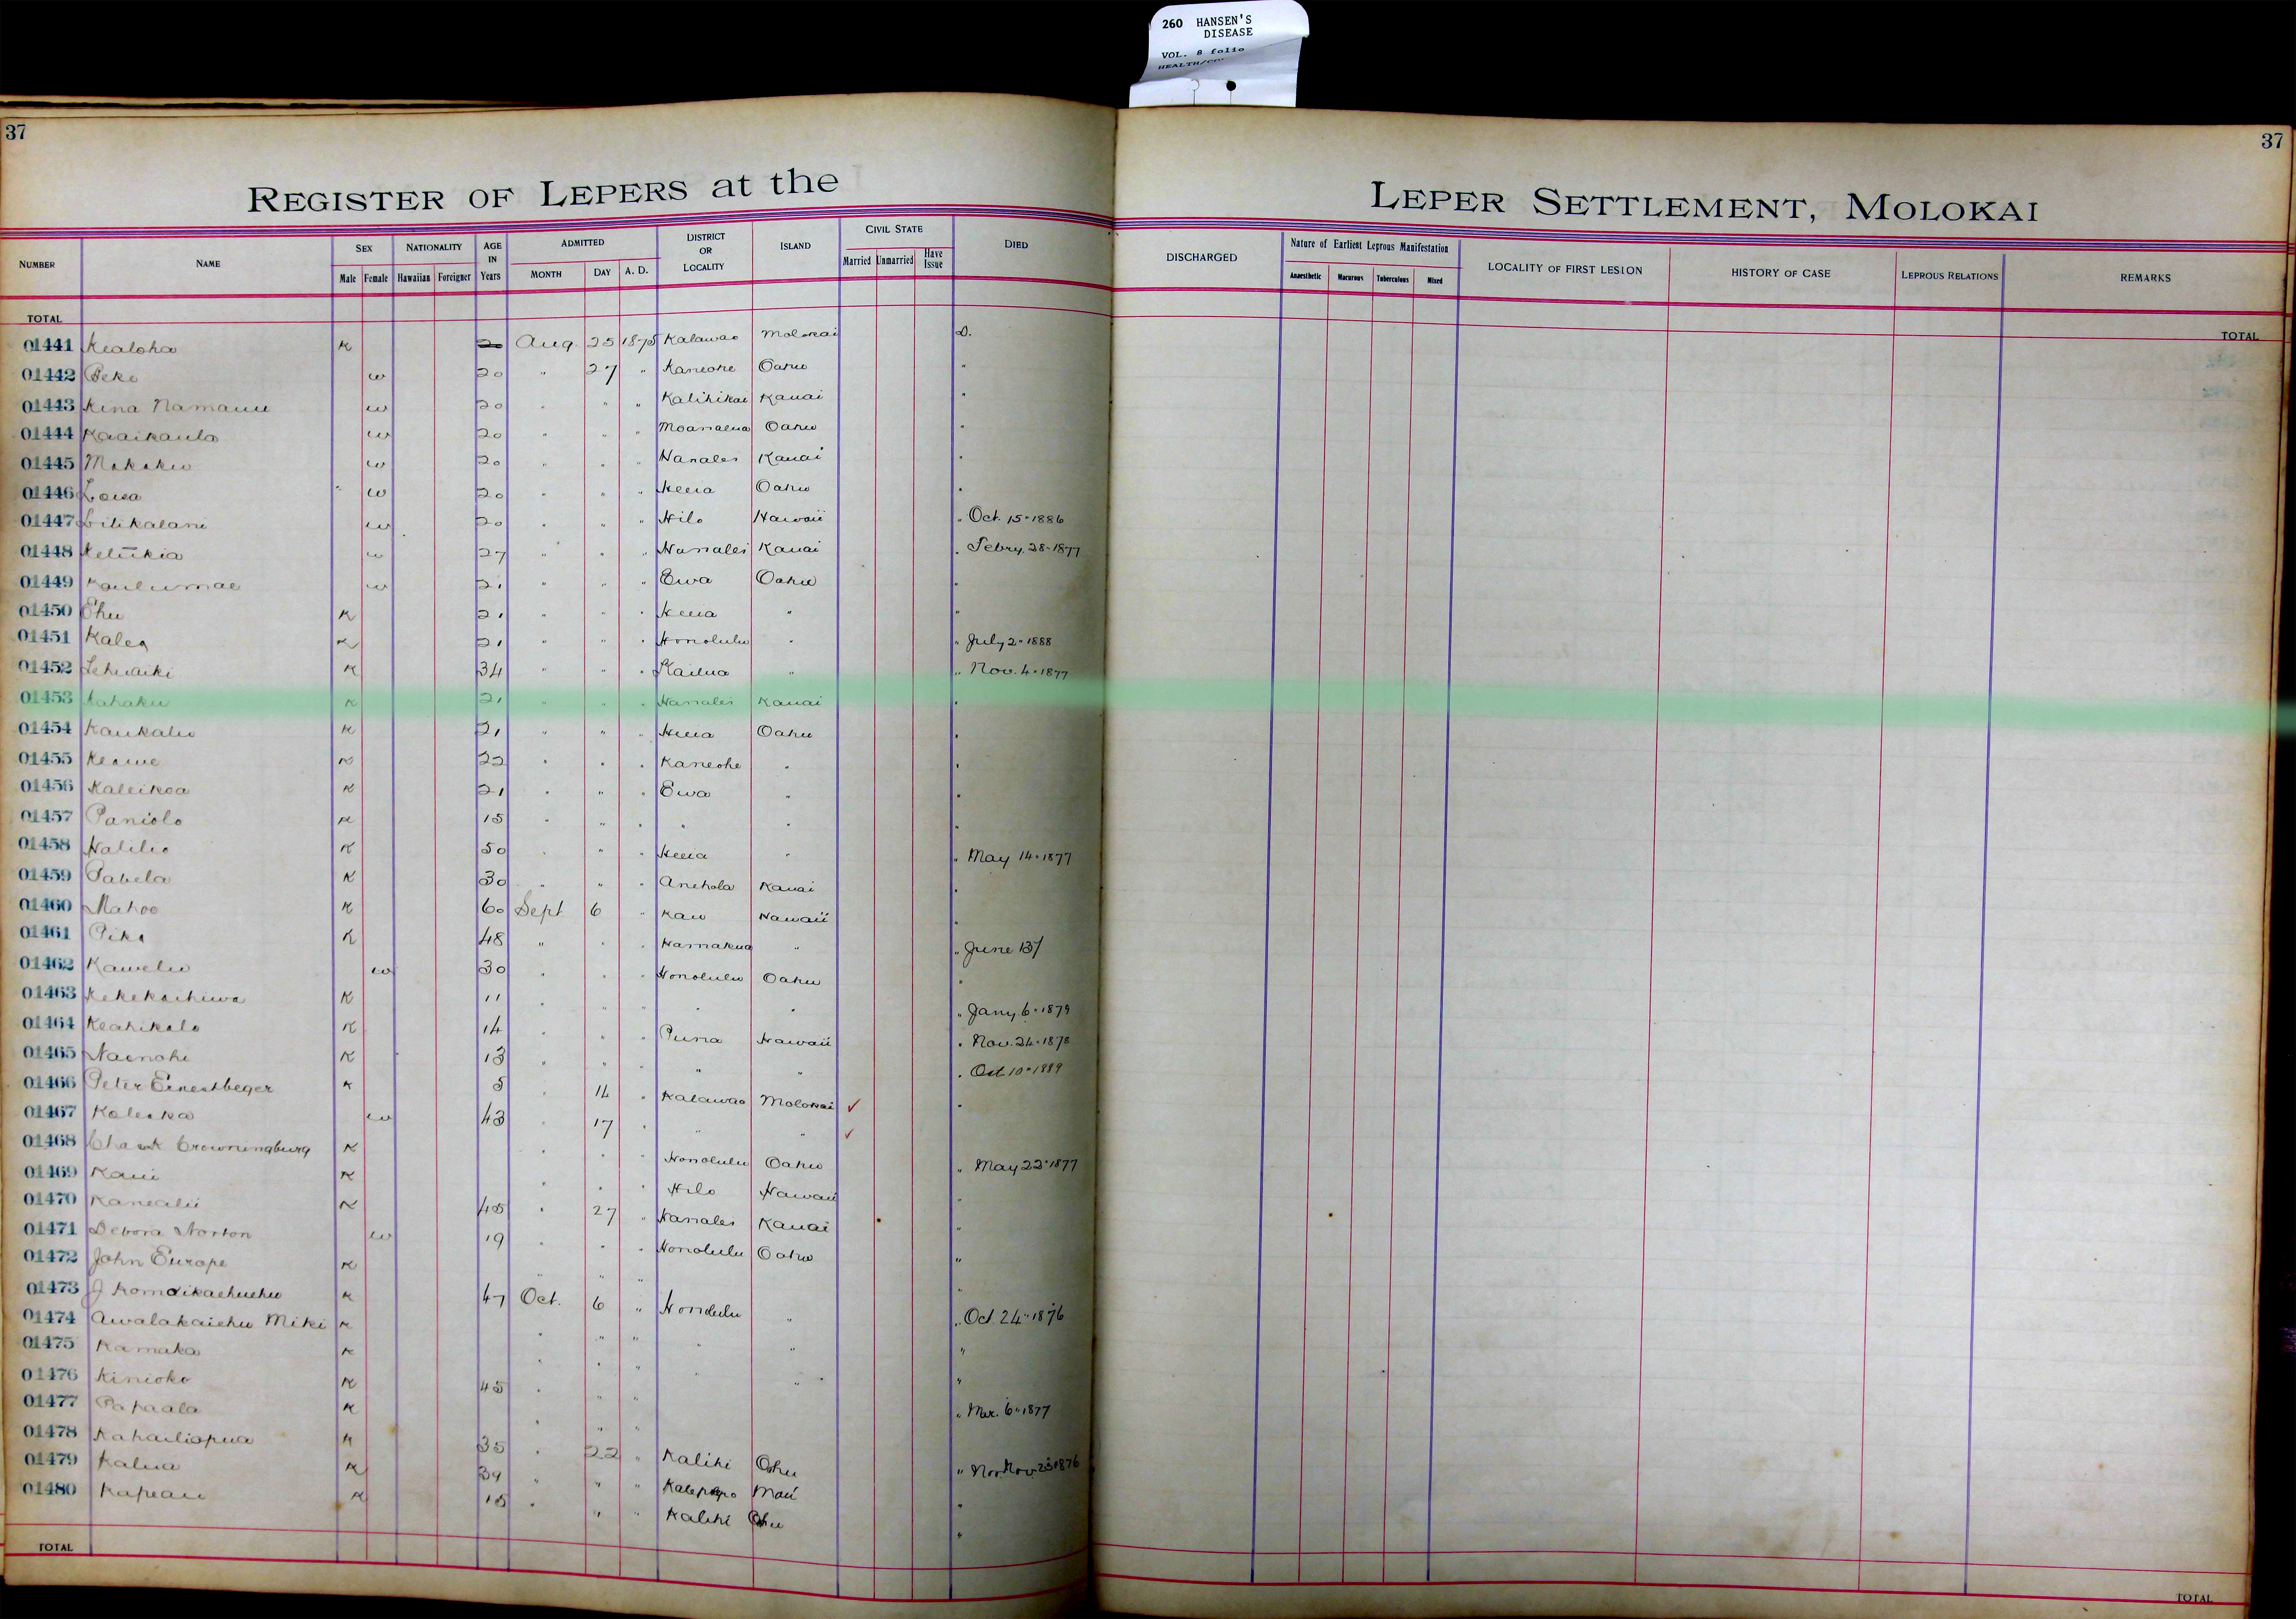 260 HANSEN'S
DISEASE
VOL. 8 folio
37
37
REGISTER OF LEPERS at the
LEPER SETTLEMENT, MOLOKAI
NUMBER NAME SEX Male Female NATIONALITY Hawaiian Foreigner AGE IN Years ADMITTED MONTH DAY A. D. DISTRICT OR LOCALITY ISLAND CIVIL STATE Married Unmarried Have Issue DIED
DISCHARGED Nature of Earliest Leprous Manifestation Anaesthetic Macurous Tuberculous Mixed LOCALITY OF FIRST LESION HISTORY OF CASE LEPROUS RELATIONS REMARKS
TOTAL
TOTAL
01441 Kealoha K 20 Aug. 25 1875 Kalawao Molokai D.
01442 Peke w 20 " 27 " Kaneohe Oahu "
01443 Kina Namauu w 20 " " " Kalihikai Kauai "
01444 Kaaikaula w 20 " " " Moanalua Oahu "
01445 w 20 " " " Hanalei Kauai "
01446 w 20 " " " Heeia Oahu "
01447 Lilikalani w 20 " " " Hilo Hawaii " Oct. 15 1886
01448 Keliikia w 27 " " " Hanalei Kauai " Febry. 28 1877
01449 Kaulumae w 21 " " " Ewa Oahu "
01450 Ehu K 21 " " " Heeia " "
01451 Kalea K 21 " " " Honolulu " " July 2 1888
01452 Lehuaiki K 34 " " " Kailua " " Nov. 4 1877
01453 Kahaku K 21 " " " Hanalei Kauai "
01454 Kaukaliu K 21 " " " Heeia Oahu "
01455 Keawe K 22 " " " Kaneohe " "
01456 Kaleikoa K 21 " " " Ewa " "
01457 Paniolo K 15 " " " " " "
01458 Halilio K 50 " " " Heeia " " May 14 1877
01459 Pabela K 30 " " " Anehola Kauai "
01460 Mahoe K 60 Sept 6 " Kau Hawaii "
01461 K 48 " " " Hamakua " " June 137
01462 Kawelu w 30 " " " Honolulu Oahu "
01463 Kekekachiwa K 11 " " " " " " Jany. 6 1879
01464 Keahikolo K 14 " " " Puna Hawaii " Nov. 24 1878
01465 Nainohi K 13 " " " " " " Oct 10 1889
01466 Peter Ernestbeger K 5 " 14 " Kalawao Molokai ✓ "
01467 Kaleika w 43 " 17 " " " ✓
01468 Crowningburg K " " " Honolulu Oahu " May 22 1877
01469 Kaui K " " " Hilo Hawaii "
01470 Kanealii K 45 " 27 " Hanalei Kauai "
01471 Debora Norton w 19 " " " Honolulu Oahu "
01472 John Europe K " " " "
01473 J K 47 Oct. 6 " Honolulu " " Oct. 24 1876
01474 Awalakaiehu Miki K " " " " " "
01475 Kamaka K " " " " " "
01476 Kinioko K 45 " " "
01477 Papaala K " " " " Mar. 6 1877
01478 Kahailiopua K 35 " 22 " Kalihi Oahu " Nov. 23 1876
01479 Kalua K 39 " " " Kalepopo Maui "
01480 Kapeau K 15 " " " Kalihi Oahu "
TOTAL
TOTAL